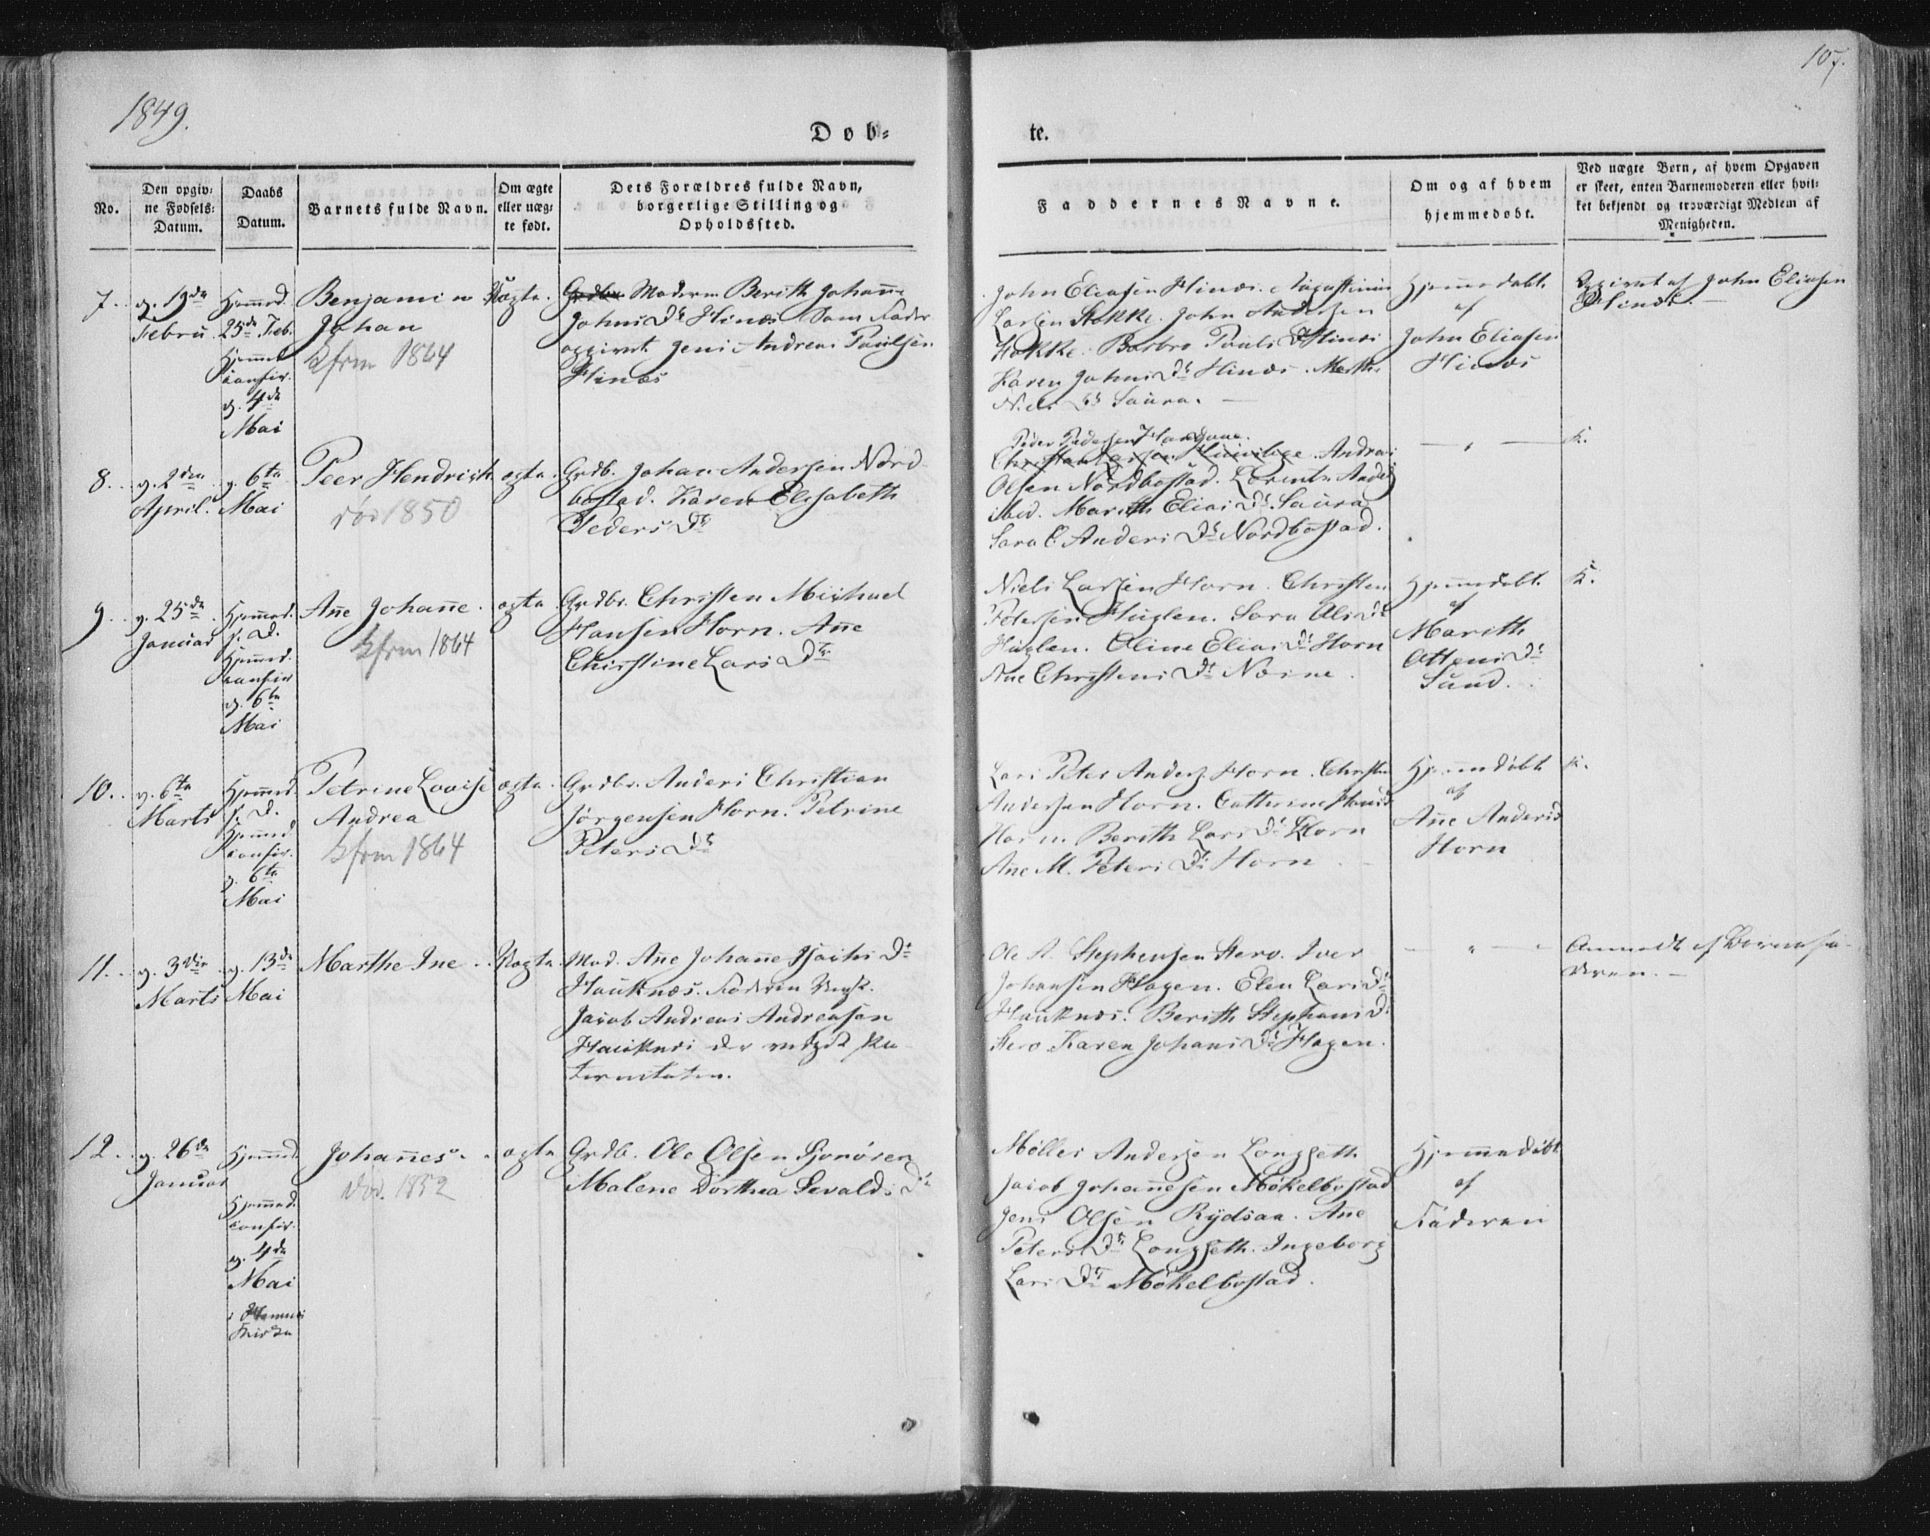 107.
1849.
Døb=
te.
No.
Den opgiv=
ne Fødsels=
Datum.
Daabs
Datum.
Barnets fulde Navn.
Om ægte
eller uæg=
te født.
Dets Forældres fulde Navn,
borgerlige Stilling og
Opholdssted.
Faddernes Navne.
Om og af hvem
hjemmedøbt.
Ved uægte Børn, af hvem Opgaven
er skeet, enten Barnemoderen eller hvil=
ket bekjendt og troværdigt Medlem af
Menigheden.
7.
d. 19de
Febru
Hjemmed.
25de Feb.
Hjemmed.
confir.
d. 4de
Mai
Benjamin
Johan
kfrm 1864
Uægte.
Grdbr. Moderen Berith Johanne
Johns Dtr Hinæs. Som Fader
opgivet Jens Andreas Paulsen
Hinæs
John Eliasen Hinæs.
Larsen Stokke. John Andersen
Stokke. Barbro Pauls D Hinæs
Karen Johns Dtr Hinæs.
Niels Dtr Saura.
Hjemmedøbt
af
John Eliasen
Hinæs
Opgivet af John Eliasen
Hinæs.
8.
d. 2den
April.
d. 6te
Mai
Peer Hendrick
død 1850
ægte.
Grdb. Johan Andersen Nord
bostad. Karen Elisabeth
Peders Dtr
Peder Pedersen
Andreas
Olsen Nordbostad. Lorents Anders
ibid. Marith Elias Dtr Saura
Sara C. Anders Dtr Nordbostad.
K.
9.
d. 25de
Januar
Hjemmed.
f. D.
Hjemmed.
confir
d. 6te
Mai
Ane Johanne.
kfrm 1864
ægte
Grdbr. Christen Michael
Hansen Horn. Ane
Christine Lars Dtr
Niels Larsen Horn. Christen
Petersen Huglen. Sara Ols Dtr
Huglen. Oline Elias Dtr Horn
Ane Christens Dtr Næsne.
Hjemmedøbt
af
Marith
Ottens Dtr
Sund.
K.
10.
d. 6te
Marts
Hjemmed.
f. D.
Hjemmed
confir.
d. 6te
Mai
Petrine Lovise
Andrea
kfrm 1864
ægte.
Grdbr. Anders Christian
Jørgensen Horn. Petrine
Peters Dtr
Lars Peter Anders. Horn. Christen
Andersen Horn. Cathrine Hans D
Horn. Berith Lars Dtr Horn
Ane M. Peters Dtr Horn
Hjemmedøbt
af
Ane Anders D
Horn
K.
11.
d. 3die
Marts
d. 13de
Mai
Marthe Ine
Uægte
Mod. Ane Johanne Isachs Dtr
Hauknæs. Faderen Ungk.
Jacob Andreas Andreasen
Hauknæs der vedgik Pa
terniteten.
Ole A. Stephensen Herø. Iver
Johansen Hagen. Elen Lars Dtr
Hauknæs. Berith Stephans D
Herø. Karen Johans Dtr Hagen.
Anmeldt af Barnefa
deren.
12.
d. 26de
Januar
Hjemmed
Hjemmed.
confir.
d. 4de
Mai
i Hemnes
Kirke
Johannes.
død. 1852
ægte
Grdb. Ole Olsen
Malene Dorthea Sevalds Dtr
Møller Andersen Langseth
Jacob Johannesen Møkelbostad
Jens Olsen Rydsaa. Ane
Peters Dtr Langseth. Ingeborg
Lars Dtr Møkelbostad.
Hjemmedøbt
af
Faderen